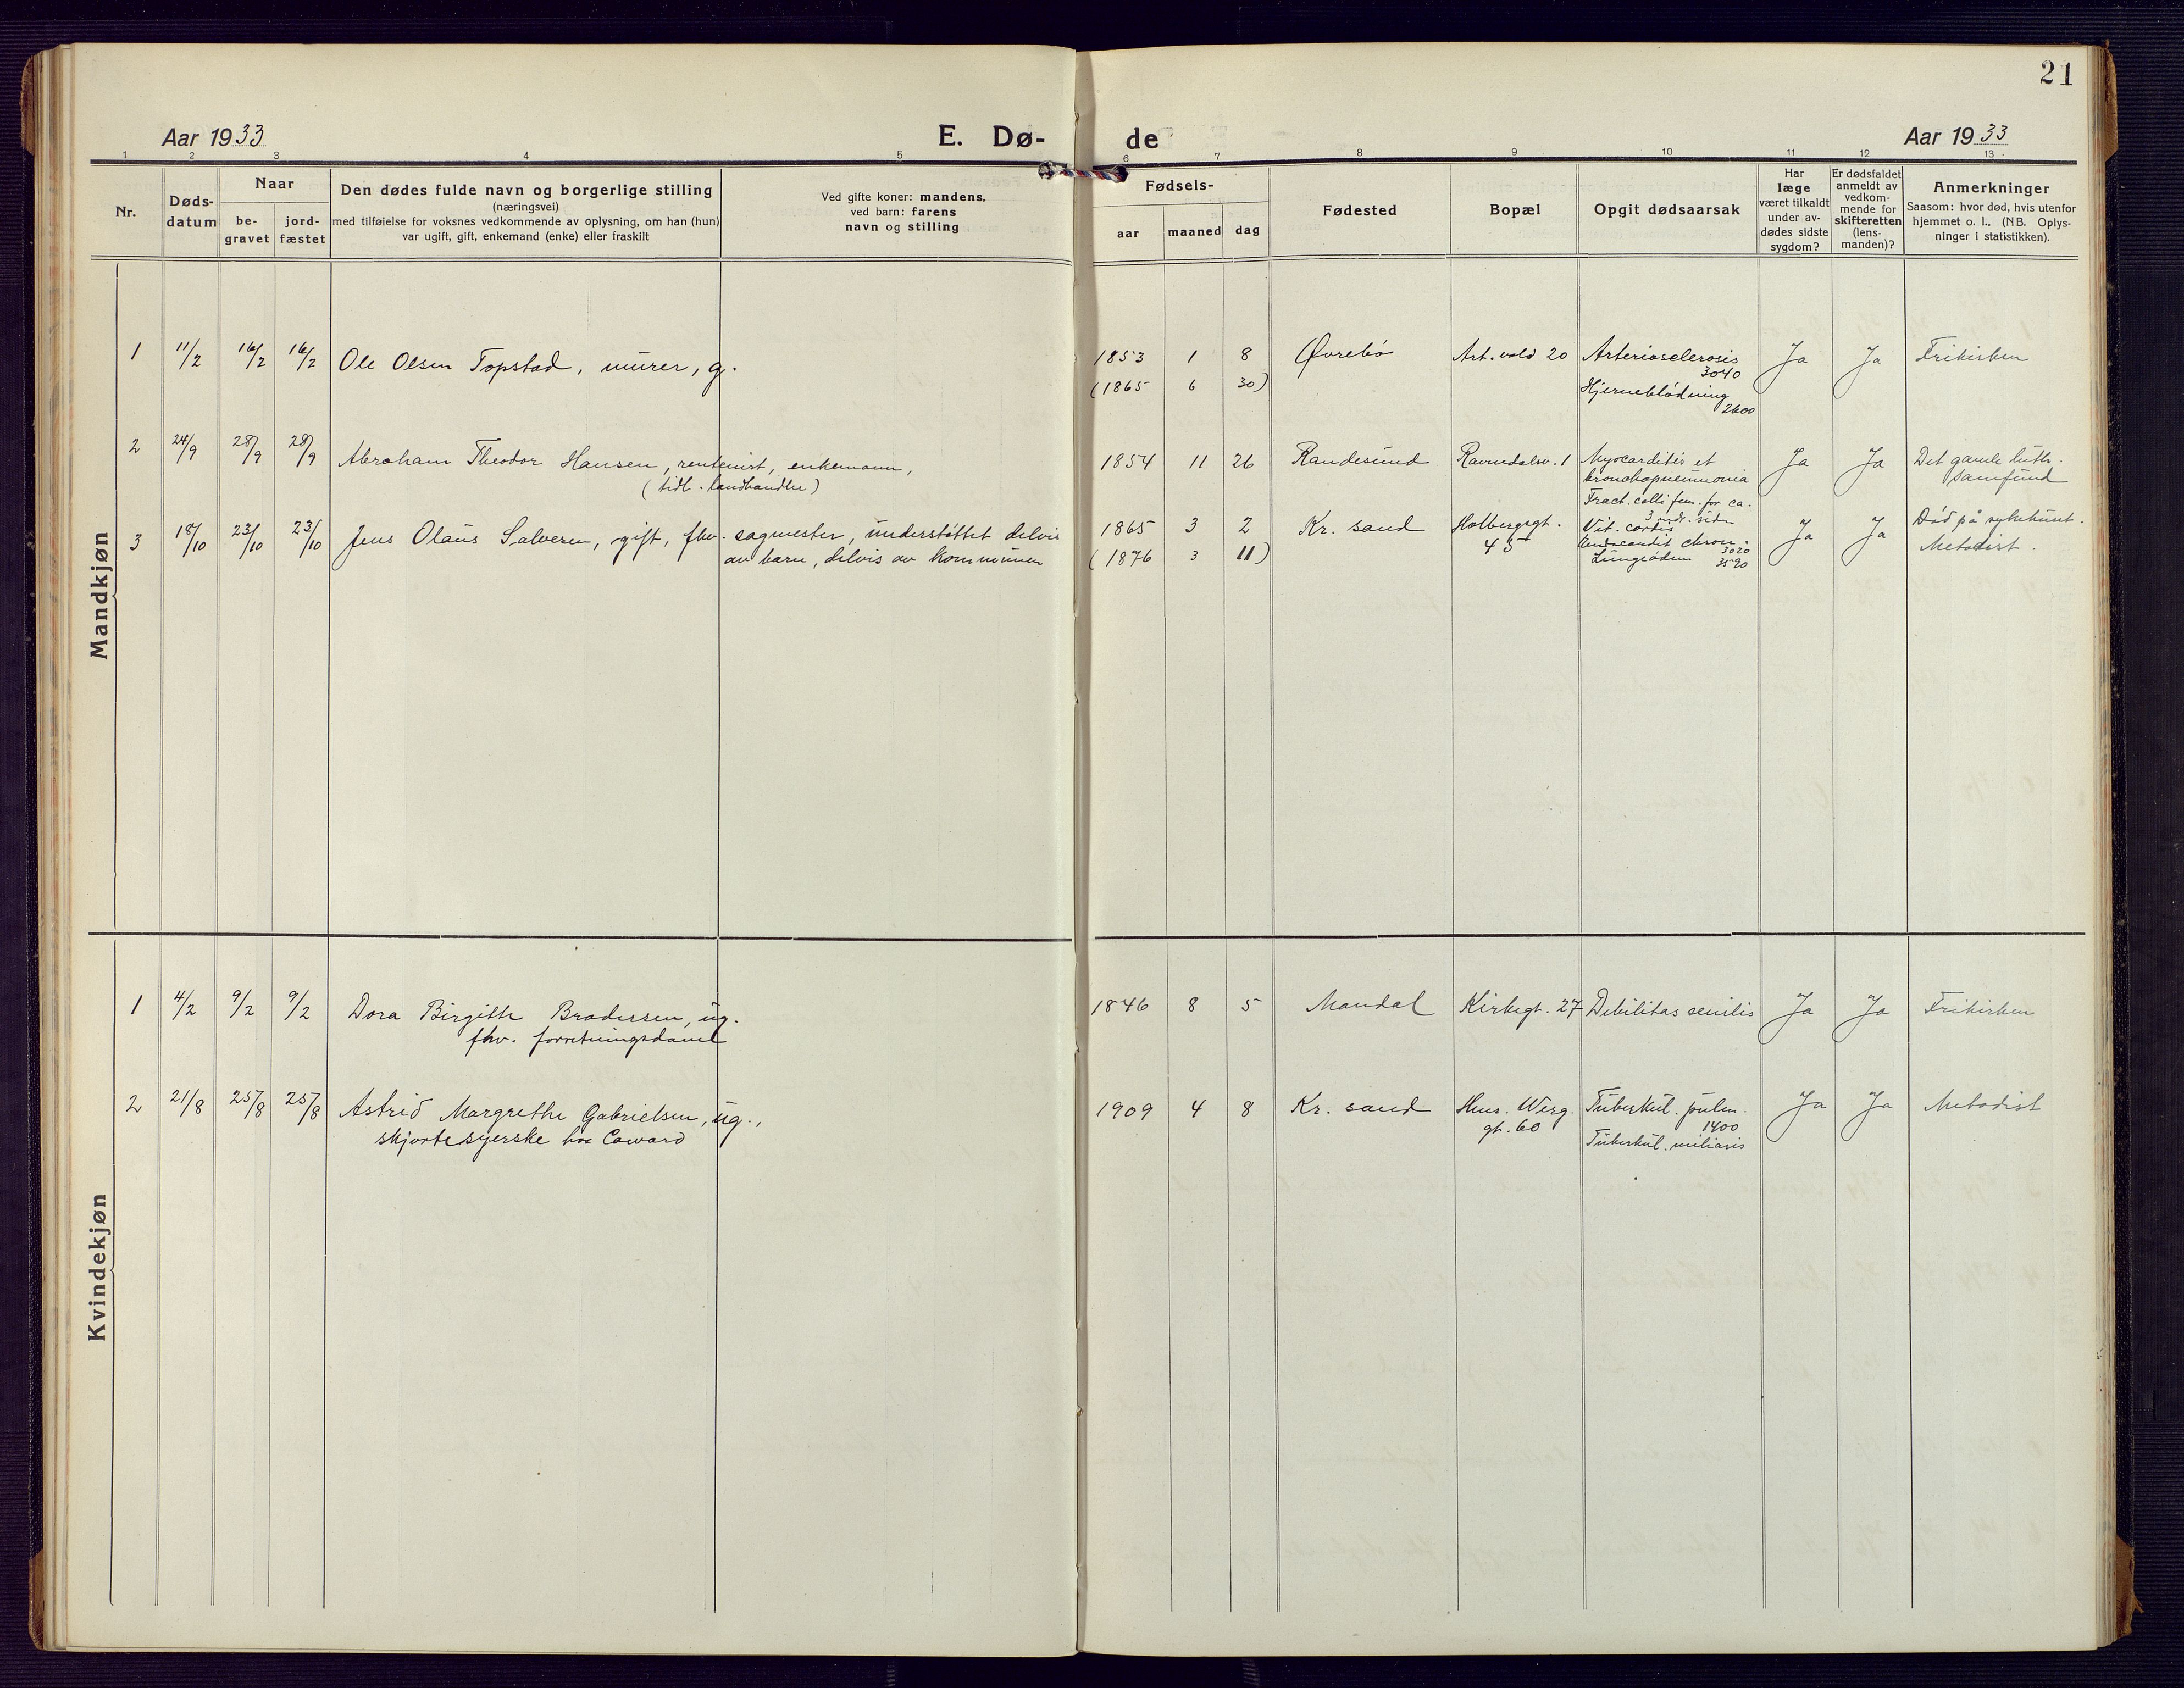 21
Aar 1933
E. Dø-
de
Aar 1933
1 2 3 4 5 6 7 8 9 10 11 12 13
Nr.
Døds-
datum
Naar
be-
gravet
jord-
fæstet
Den dødes fulde navn og borgerlige stilling
(næringsvei)
med tilføielse for voksnes vedkommende av oplysning, om han (hun)
var ugift, gift, enkemand (enke) eller fraskilt
Ved gifte koner: mandens,
ved barn: farens
navn og stilling
Fødsels-
aar maaned dag
Fødested
Bopæl
Opgit dødsaarsak
Har
læge
været tilkaldt
under av-
dødes sidste
sygdom?
Er dødsfaldet
anmeldt av
vedkom-
mende for
skifteretten
(lens-
manden)?
Anmerkninger
Saasom: hvor død, hvis utenfor
hjemmet o. l.. (NB. Oplys-
ninger i statistikken).
Mandkjøn
1 11/2 16/2 16/2 Ole Olsen Topstad, murer, g.
1853 1 8 Øvrebö Art. vold 20 Arteriosclerosis Ja Ja Frikirken
3040
(1865 6 30) Hjerneblödning
2600
2 24/9 28/9 28/9 Abraham Theodor Hansen, rentenist, enkemann,
(tidl. landhandler)
1854 11 26 Randesund Ravndalsv. 1 Myocarditis et Ja Ja Det gamle luth.
bronchopneumonia samfund
Fract. colli fem. for ca.
3 mdr. siden
3 18/10 23/10 23/10 Jens Olaus Salvesen, gift, fhv. sagmester, understöttet delvis
av barn, delvis av kommunen
1865 3 2 Kr. sand Holbergsgt. Vit. cordis Ja Ja Död på sykehuset.
45 Endocardit chron. Metodist.
3020
(1876 3 11) Lungeödem 3520
Kvindekjøn
1 4/2 9/2 9/2 Dora Birgith Brodersen, ug.
fhv. forretningsdame
1846 8 5 Mandal Kirkegt. 27 Debilitas senilis Ja Ja Frikirken
2 21/8 25/8 25/8 Astrid Margrethe Gabrielsen, ug.,
skjortesyerske hos Coward
1909 4 8 Kr. sand Henr. Werg. Tuberkul. pulm. Ja Ja Metodist
gt. 60 1400
Tuberkul. miliaris